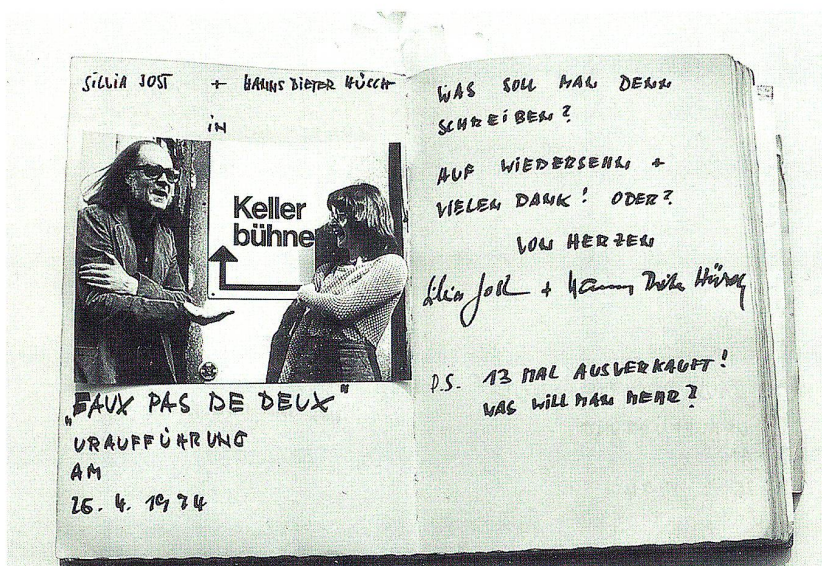 SILVIA JOST + HANNS DIETER HÜSCH
IN
Keller
bühne
„FAUX PAS DE DEUX"
URAUFFÜHRUNG
AM
26. 4. 1974
WAS SOLL MAN DENN
SCHREIBEN?
AUF WIEDERSEHN +
VIELEN DANK! ODER?
VON HERZEN
Silvia Jost + Hanns Dieter Hüsch
P.S. 13 MAL AUSVERKAUFT!
WAS WILL MAN MEHR?